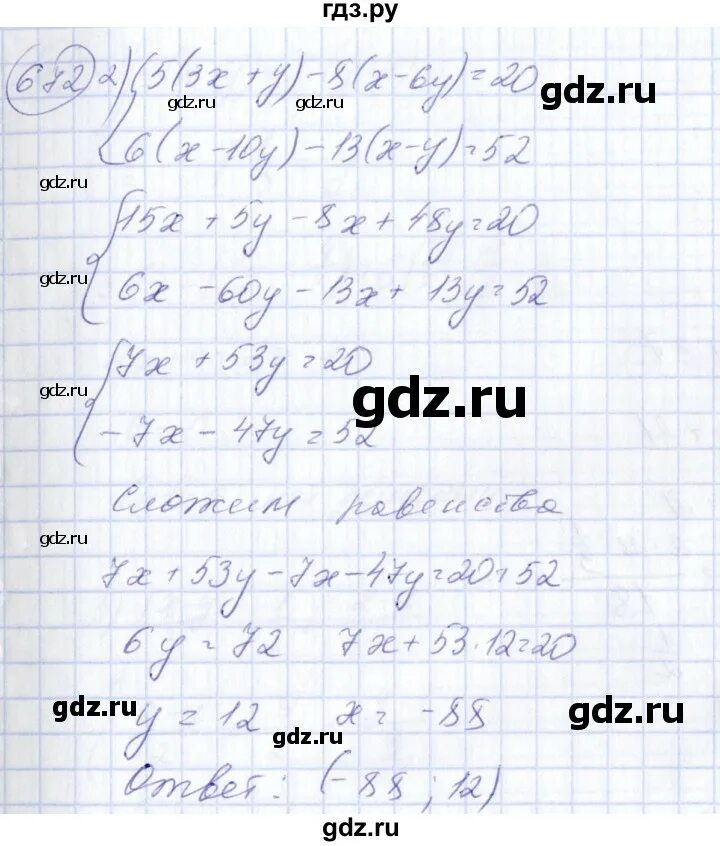 гдз.ру
672 2) { 5(3x + y) - 8(x - 6y) = 20
gdz.ru gdz.ru
6(x - 10y) - 13(x - y) = 52
gdz.ru
{ 15x + 5y - 8x + 48y = 20
gdz.ru
6x - 60y - 13x + 13y = 52
{ 7x + 53y = 20
gdz.ru
gdz.ru
-7x - 47y = 52
Сложим равенства
gdz.ru
7x + 53y - 7x - 47y = 20 + 52
6y = 72 7x + 53 · 12 = 20
gdz.ru gdz.ru
y = 12 x = -88
gdz.ru
Ответ: (-88; 12)
gdz.ru